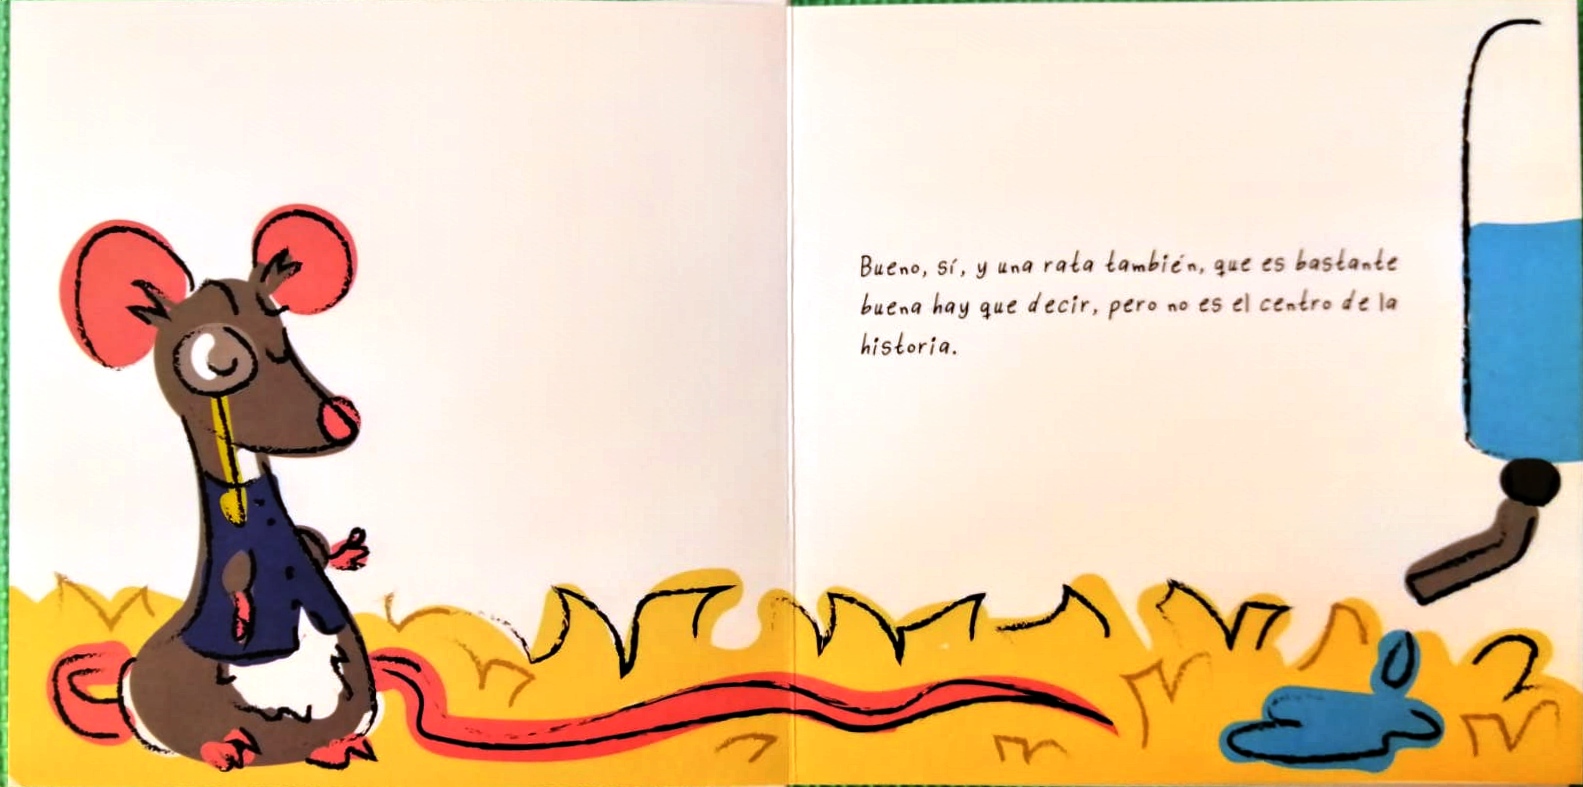 Bueno, sí, y una rata también, que es bastante
buena hay que decir, pero no es el centro de la
historia.